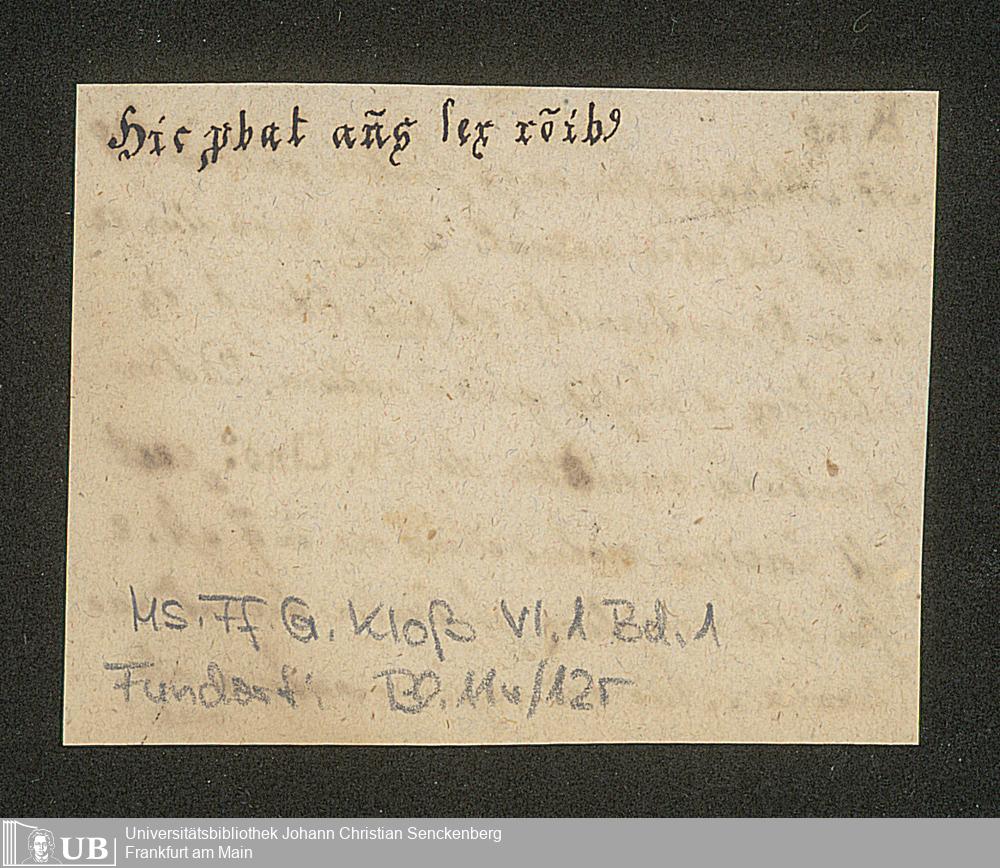 Hic ꝓbat añs sex rõibꝰ
Ms. Ff. G. Kloß VI.1 Bd. 1
Fundort: Bl. 11v/12r
UB
Universitätsbibliothek Johann Christian Senckenberg
Frankfurt am Main